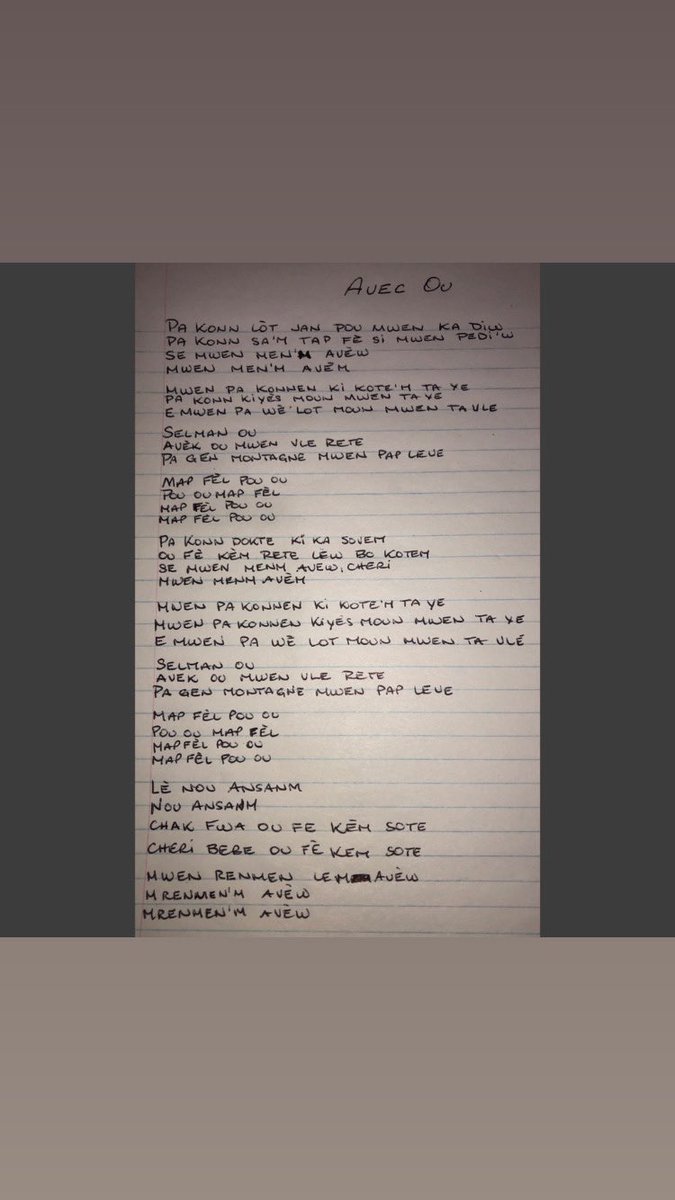 AVEC OU
PA KONN LÒT JAN POU MWEN KA DIW
PA KONN SA'M TAP FÈ SI MWEN PEDI'W
SE MWEN MEN'M AVÈW
MWEN MEN'M AVÈM
MWEN PA KONNEN KI KOTE'M TA YE
PA KONN KIYÈS MOUN MWEN TA YE
E MWEN PA WÈ LOT MOUN MWEN TA VLE
SELMAN OU
AVÈK OU MWEN VLE RETE
PA GEN MONTAGNE MWEN PAP LEVE
MAP FÈL POU OU
POU OU MAP FÈL
MAP FÈL POU OU
MAP FÈL POU OU
PA KONN DOKTE KI KA SOVEM
OU FÈ KÈM RETE LÈW BO KOTEM
SE MWEN MENM AVEW, CHERI
MWEN MENM AVÈM
MWEN PA KONNEN KI KOTE'M TA YE
MWEN PA KONNEN KIYÉS MOUN MWEN TA YE
E MWEN PA WÈ LOT MOUN MWEN TA VLÉ
SELMAN OU
AVEK OU MWEN VLE RETE
PA GEN MONTAGNE MWEN PAP LEVE
MAP FÈL POU OU
POU OU MAP FÈL
MAP FÈL POU OU
MAP FÈL POU OU
LÈ NOU ANSANM
NOU ANSANM
CHAK FWA OU FE KÈM SOTE
CHERI BEBE OU FÈ KEM SOTE
MWEN RENMEN LEM AVÈW
MRENMEN'M AVÈW
MRENMEN'M AVÈW